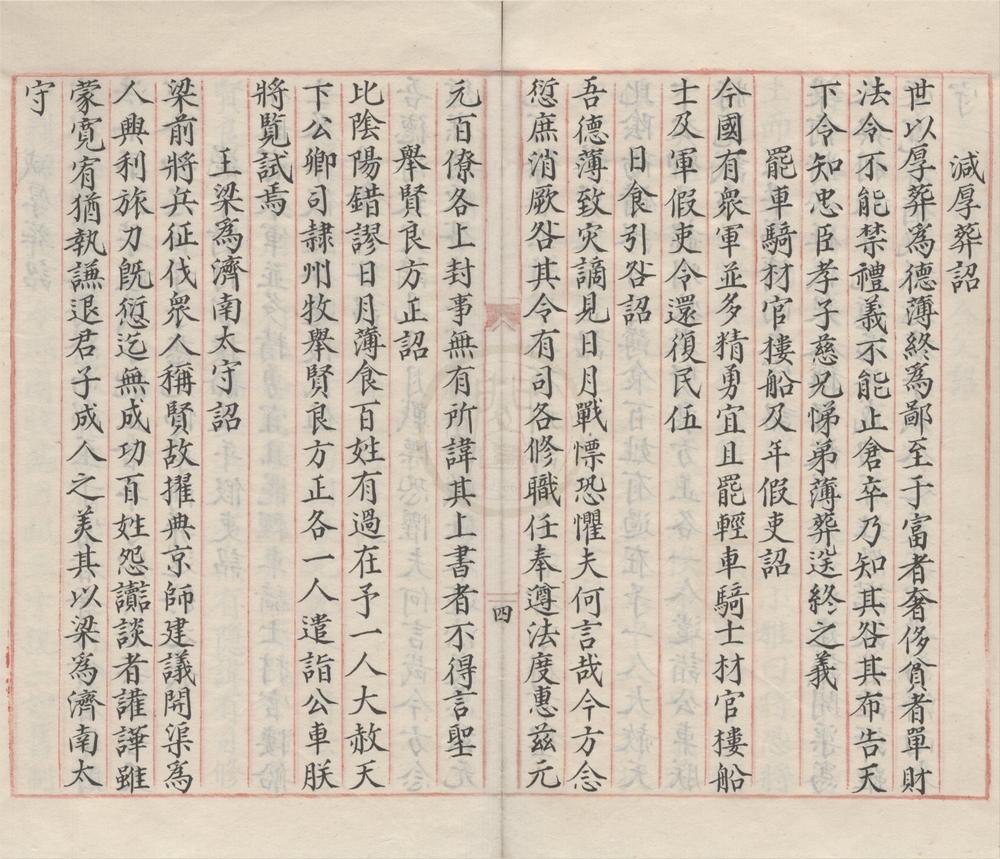 減厚葬詔
世以厚葬爲德薄終爲鄙至于富者奢侈貧者單財
法令不能禁禮義不能止倉卒乃知其咎其布告天
下令知忠臣孝子慈兄悌弟薄葬送終之義
罷車騎材官樓船及年假吏詔
今國有衆軍並多精勇宜且罷輕車騎士材官樓船
士及軍假吏令還復民伍
日食引咎詔
吾德薄致灾謫見日月戰慄恐懼夫何言哉今方念
愆庶消厥咎其令有司各修職任奉遵法度惠兹元
四
元百僚各上封事無有所諱其上書者不得言聖
舉賢良方正詔
比陰陽錯謬日月薄食百姓有過在予一人大赦天
下公卿司隸州牧舉賢良方正各一人遣詣公車朕
將覽試焉
王梁爲濟南太守詔
梁前將兵征伐衆人稱賢故擢典京師建議開渠爲
人興利旅力旣愆迄無成功百姓怨讟談者讙譁雖
蒙寬宥猶執謙退君子成人之美其以梁爲濟南太
守